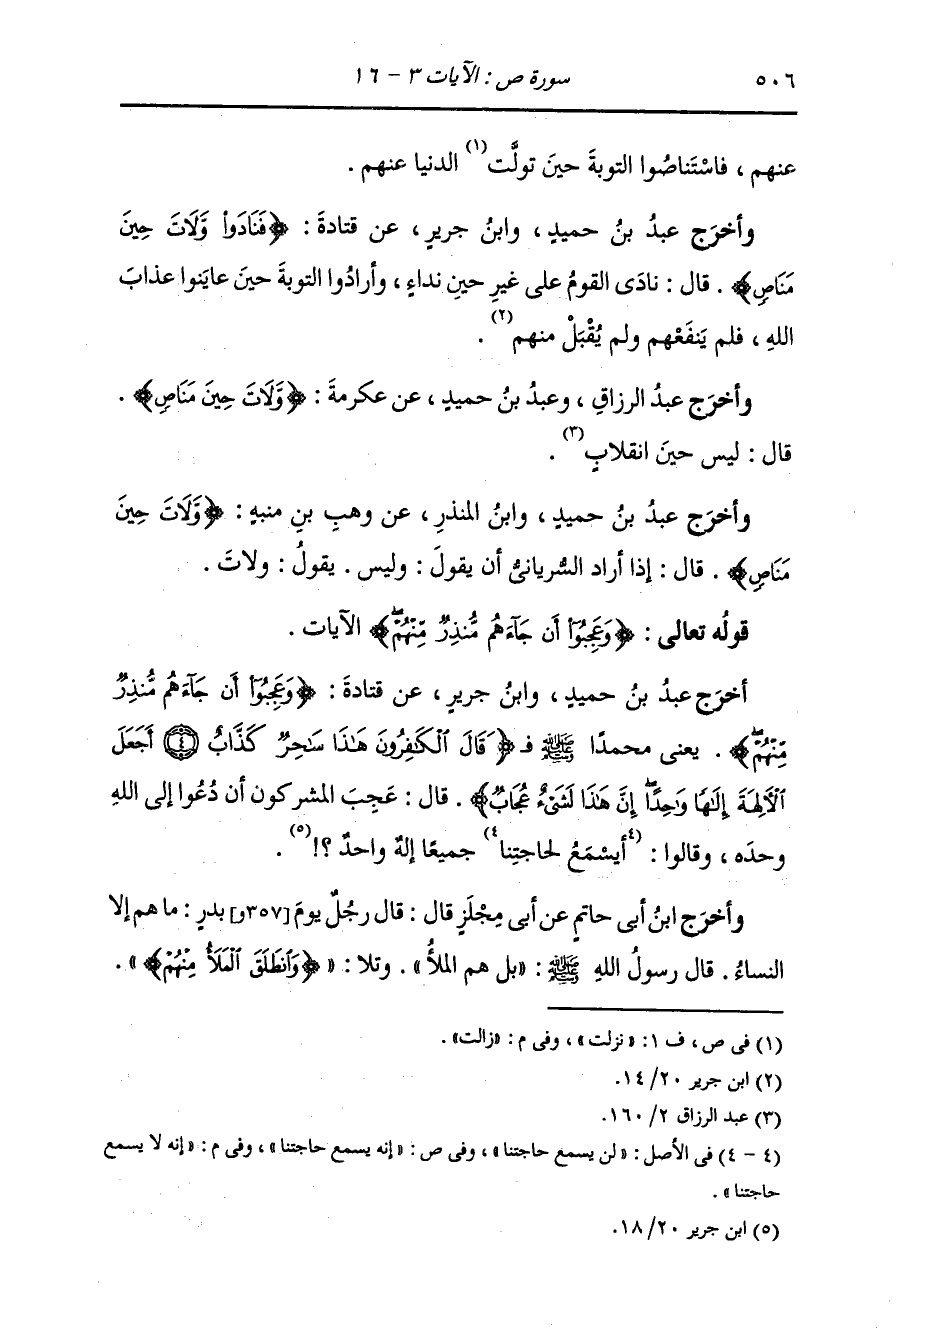 ٥٠٦ سورة ص : الآيات ٣ - ١٦
عنهم ، فاسْتَناصُوا التوبةَ حينَ تولَّت(١) الدنيا عنهم .
وأخرَج عبدُ بنُ حميدٍ ، وابنُ جريرٍ ، عن قتادةَ : ﴿فَنَادَواْ وَّلَاتَ حِينَ
مَنَاصٍ﴾ . قال : نادَى القومُ على غيرِ حينِ نداءٍ ، وأرادُوا التوبةَ حينَ عايَنوا عذابَ
اللهِ ، فلم يَنفَعْهم ولم يُقْبَلْ منهم(٢) .
وأخرَج عبدُ الرزاقِ ، وعبدُ بنُ حميدٍ ، عن عكرمةَ : ﴿وَّلَاتَ حِينَ مَنَاصٍ﴾ .
قال : ليس حينَ انقلابٍ(٣) .
وأخرَج عبدُ بنُ حميدٍ ، وابنُ المنذرِ ، عن وهبِ بنِ منبهٍ : ﴿وَّلَاتَ حِينَ
مَنَاصٍ﴾ . قال : إذا أراد السُّريانىُّ أن يقولَ : وليس . يقولُ : ولاتَ .
قولُه تعالى : ﴿وَعَجِبُوٓاْ أَن جَآءَهُم مُّنذِرٌ مِّنْهُمْۖ﴾ الآيات .
أخرَج عبدُ بنُ حميدٍ ، وابنُ جريرٍ ، عن قتادةَ : ﴿وَعَجِبُوٓاْ أَن جَآءَهُم مُّنذِرٌ
مِّنْهُمْۖ﴾ . يعنى محمدًا ﷺ فـ ﴿قَالَ ٱلْكَٰفِرُونَ هَٰذَا سَٰحِرٌ كَذَّابٌ ٤ أَجَعَلَ
ٱلْأَلِهَةَ إِلَٰهًا وَٰحِدًاۖ إِنَّ هَٰذَا لَشَىْءٌ عُجَابٌ﴾ . قال : عَجِبَ المشركون أن دُعُوا إلى اللهِ
وحدَه ، وقالوا : (٤أيسْمَعُ لحاجتِنا٤) جميعًا إلهٌ واحدٌ ؟!(٥) .
وأخرَج ابنُ أبى حاتمٍ عن أبى مِجْلَزٍ قال : قال رجُلٌ يومَ [٣٥٧و] بدرٍ : ما هم إلا
النساءُ . قال رسولُ اللهِ ﷺ : «بل هم الملأُ» . وتلا : «﴿وَٱنطَلَقَ ٱلْمَلَأُ مِنْهُمْ﴾» .
(١) فى ص ، ف ١ : «نزلت» ، وفى م : «زالت» .
(٢) ابن جرير ٢٠/ ١٤.
(٣) عبد الرزاق ٢/ ١٦٠.
(٤ - ٤) فى الأصل : «لن يسمع حاجتنا» ، وفى ص : «إنه يسمع حاجتنا» ، وفى م : «إنه لا يسمع
حاجتنا» .
(٥) ابن جرير ٢٠/ ١٨.